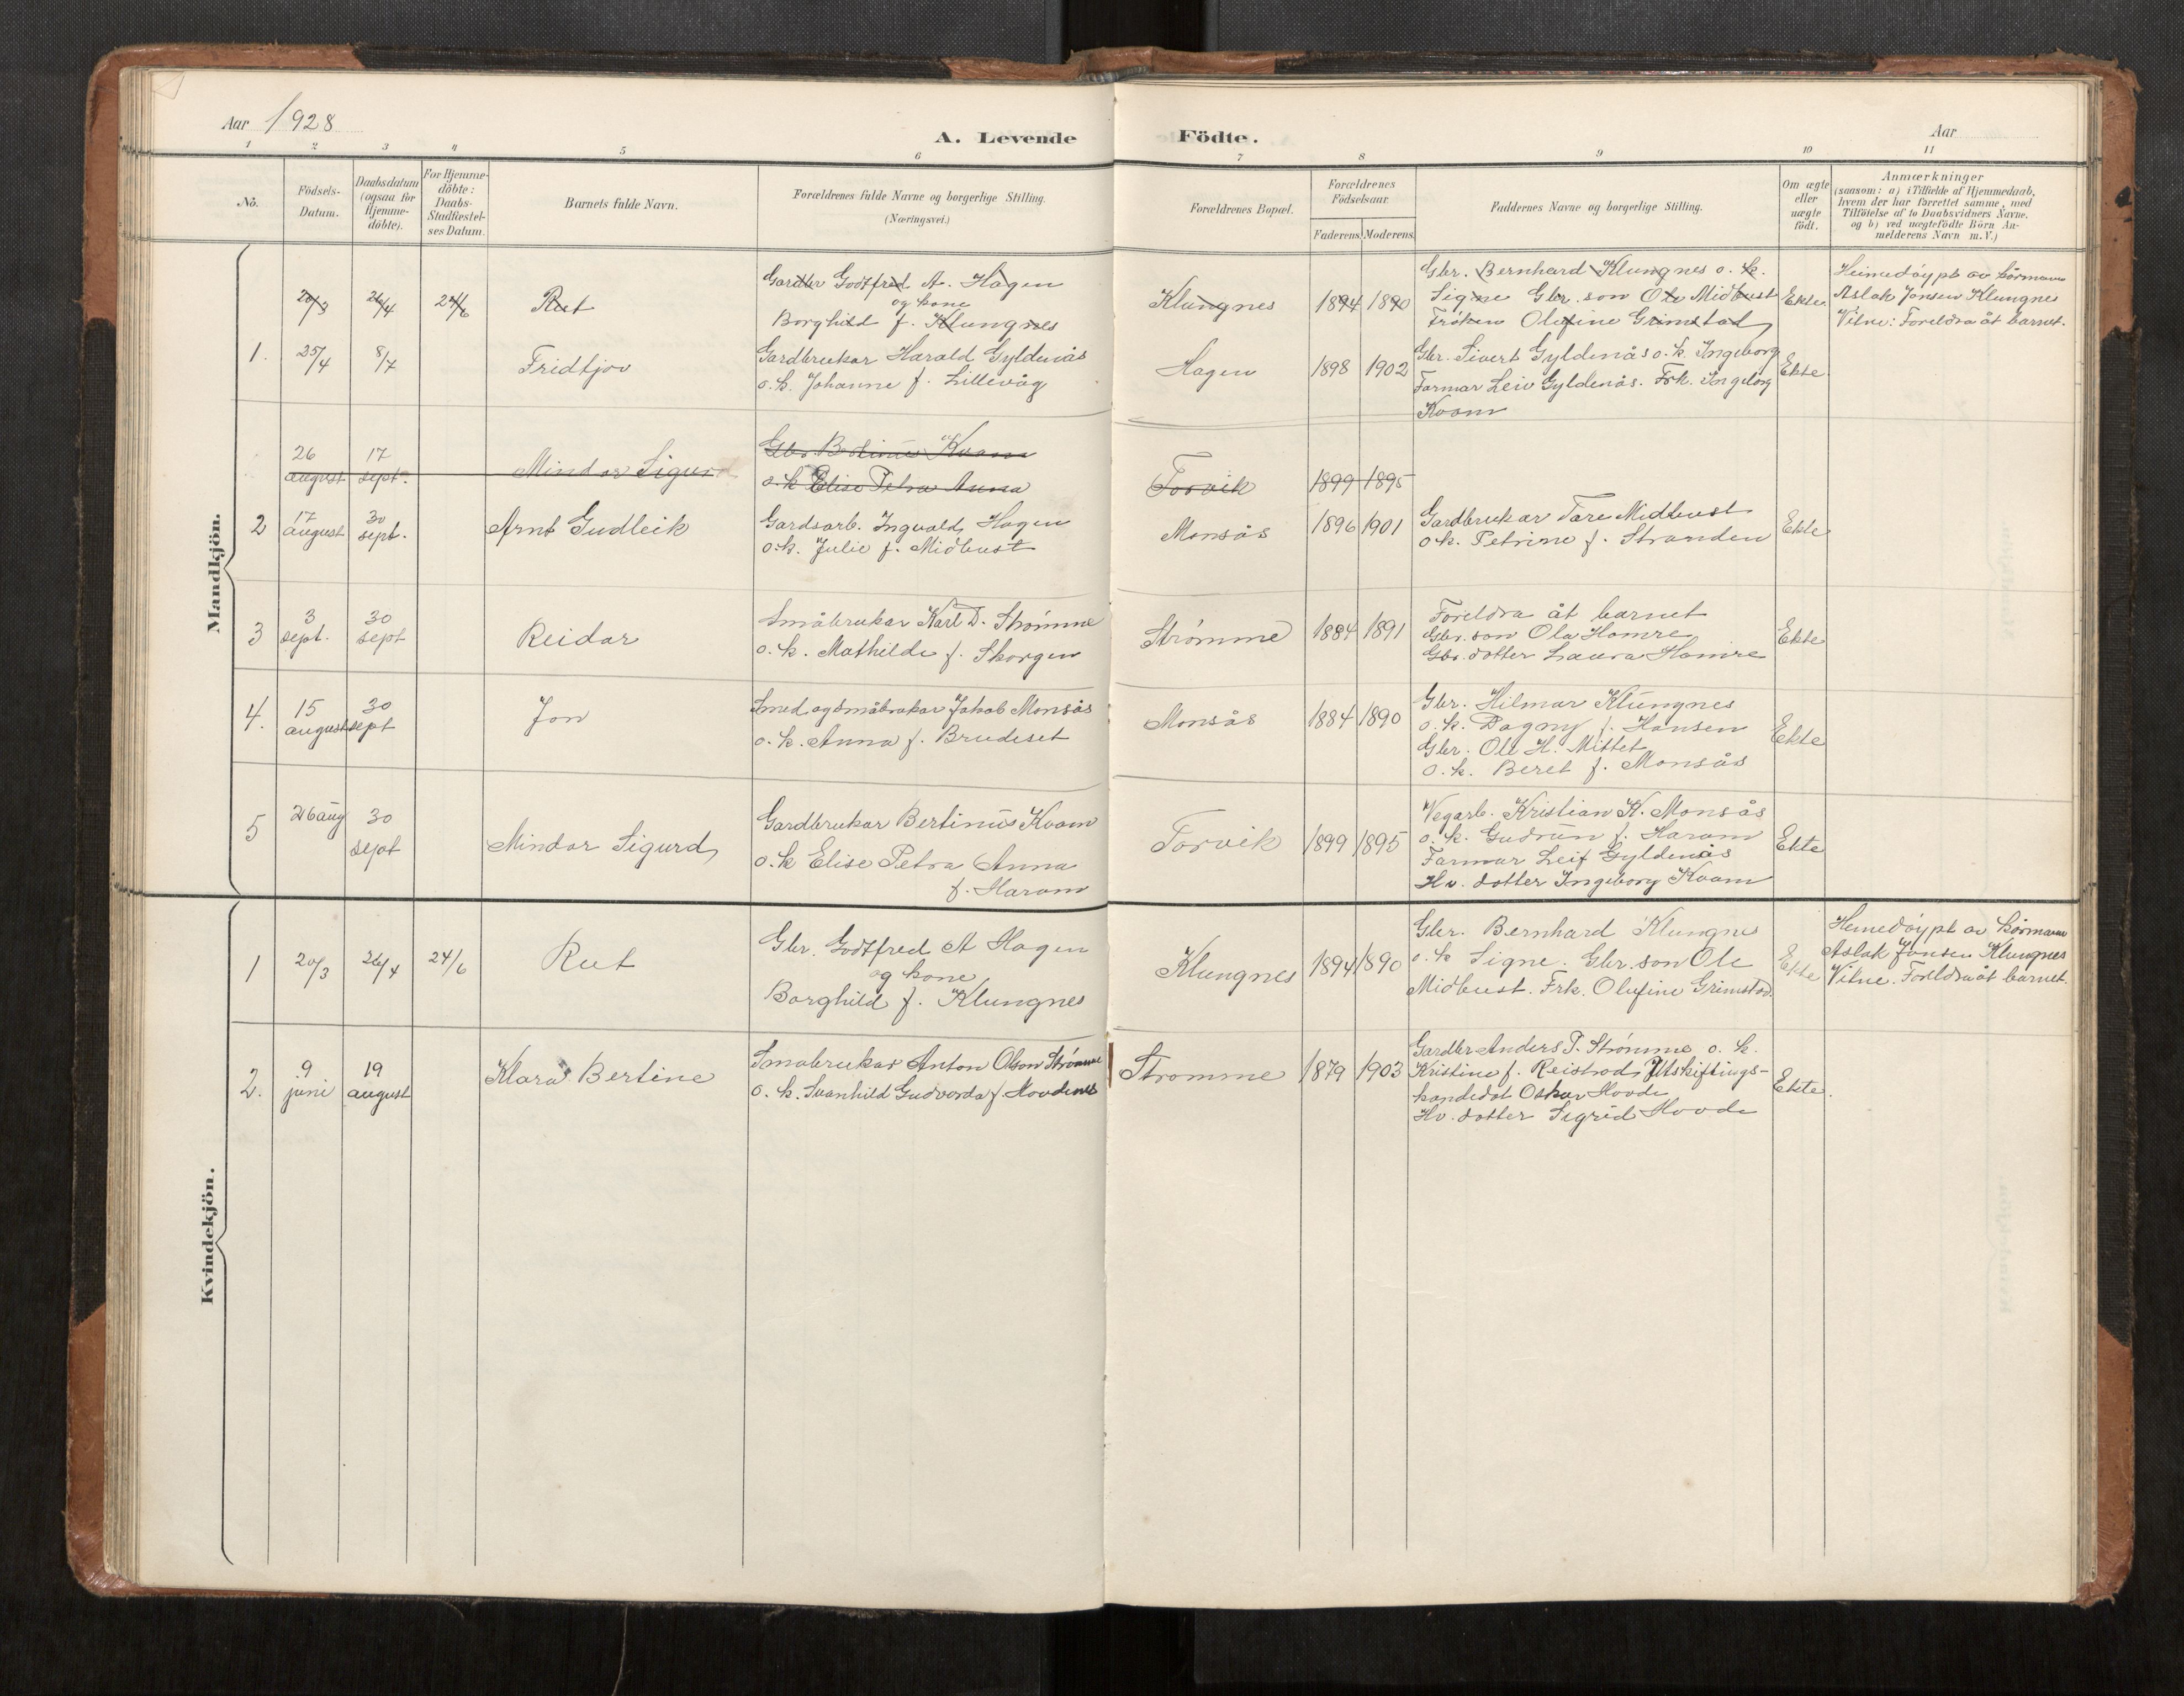 Aar 1928
A. Levende Födte.
Aar
1 2 3 4 5 6 7 8 9 10 11
Nô.
Födsels-
Datum.
Daabsdatum
(ogsaa for
Hjemme-
döbte).
For Hjemme-
döbte:
Daabs-
Stadfæstel-
ses Datum.
Barnets fulde Navn.
Forældrenes fulde Navne og borgerlige Stilling.
(Næringsvei.)
Forældrenes Bopæl.
Forældrenes
Födselsaar.
Faderens. Moderens.
Faddernes Navne og borgerlige Stilling.
Om ægte
eller
uægte
födt.
Anmærkninger
(saasom: a) i Tilfælde af Hjemmedaab,
hvem der har forrettet samme, med
Tilföielse af to Daabsvidners Navne.
og b) ved uægtefödte Börn An-
melderens Navn m.V.)
Mandkjön.
20/3 26/4 24/6 Rut
Gardbr Godtfred A. Hagen
og kone
Borghild f. Klungnes
Klungnes 1894 1890
Gbr. Bernhard Klungnes o. k.
Signe Gbr. son Ole Midbust
Frøken Olefine Grimstad
Ekte.
Heimedøypt av kårmann
Aslak Jonsen Klungnes
Vitne: Foreldra åt barnet.
1. 25/4 8/7 Fridtjov
Gardbrukar Harald Gyldenås
o. k. Johanne f. Lillevåg
Hagen 1898 1902
Gbr. Sivert Gyldenås o. k. Ingeborg
Farmar Leiv Gyldenås. Frk. Ingeborg
Kvam
Ekte
26 august 17 sept. Mindor Sigurd
Gbr. Bertinus Kvam
o. k Elise Petra Anna
Torvik 1899 1895
2 17 august 30 sept. Arnt Gudleik
Gardsarb. Ingvald Hagen
o. k. Julie f. Midbust
Monsås 1896 1901
Gardbrukar Tore Midbust
o. k. Petrine f. Stranden
Ekte
3 3 sept. 30 sept Reidar
Småbrukar Karl D. Strømme
o. k. Mathilde f. Skorgen
Strømme 1884 1891
Foreldra åt barnet
Gbr. son Ola Hamre
Gbr. dotter Laura Hamre
Ekte
4. 15 august 30 sept Jon
Smed og småbrukar Jakob Monsås
o. k. Anna f. Brudeset
Monsås 1884 1890
Gbr. Hilmar Klungnes
o. k. Dagny f. Hansen
Gbr. Ole H. Mittet
o. k. Beret f. Monsås
Ekte
5 26 aug 30 sept Mindor Sigurd
Gardbrukar Bertinus Kvam
o. k Elise Petra Anna
f. Haram
Torvik 1899 1895
Vegarb. Kristian K. Monsås
o. k. Gudrun f. Haram
Farmar Leif Gyldenås
Hv. dotter Ingeborg Kvam
Ekte
Kvindekjön.
1 20/3 26/4 24/6 Rut
Gbr. Godtfred A Hagen
og kone
Borghild f. Klungnes
Klungnes 1894 1890
Gbr. Bernhard Klungnes
o. k Signe. Gbr. son Ole
Midbust. Frk. Olufine Grimstad.
Ekte
Hemedøypt av kårmann
Aslak Jonsen Klungnes
Vitne. Foreldra åt barnet.
2. 9 juni 19 august Klara Bertine
Småbrukar Anton Olson Strømme
o. k. Svanhild Gudvorda f. Hovdenes
Strømme 1879 1903
Gardbr Anders P. Strømme o. k.
Kristine f. Reistad, Utskiftings-
kandidat Oskar Hovde
Hv. dotter Sigrid Hovde
Ekte.